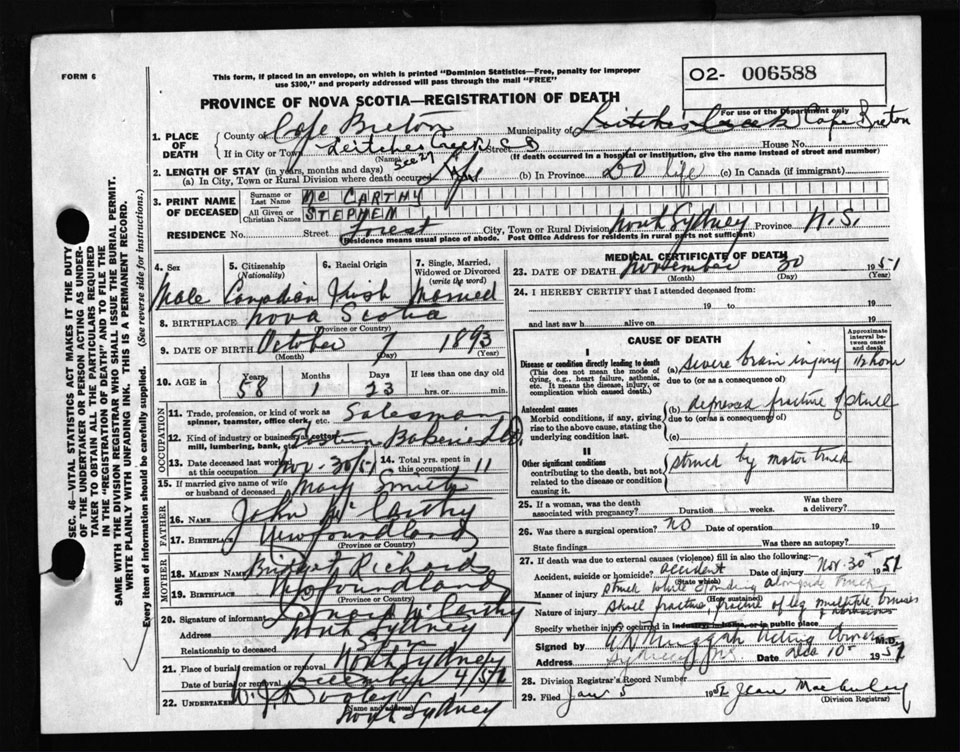 FORM 6
This form, if placed in an envelope, on which is printed "Dominion Statistics—Free, penalty for improper
use $300," and properly addressed will pass through the mail "FREE"
O2- 006588
For use of the Department only
PROVINCE OF NOVA SCOTIA—REGISTRATION OF DEATH
1. PLACE OF DEATH County of Cape Breton Municipality of Leitches Creek Cape Breton
If in City or Town Leitches Creek C B Street House No.
(Name) (If death occurred in a hospital or institution, give the name instead of street and number)
2. LENGTH OF STAY (in years, months and days)
(a) In City, Town or Rural Division where death occurred (b) In Province Do life (c) In Canada (if immigrant)
3. PRINT NAME OF DECEASED
Surname or Last Name Mc CARTHY
All Given or Christian Names STEPHEN
RESIDENCE No. Street Forest City, Town or Rural Division North Sydney Province N.S.
(Residence means usual place of abode. Post Office Address for residents in rural parts not sufficient)
4. Sex Male
5. Citizenship (Nationality) Canadian
6. Racial Origin Irish
7. Single, Married, Widowed or Divorced (write the word) Married
8. BIRTHPLACE Nova Scotia
(Province or Country)
9. DATE OF BIRTH October 7 1893
(Month) (Day) (Year)
10. AGE in Years Months Days If less than one day old
58 1 23 hrs. or min.
OCCUPATION
11. Trade, profession, or kind of work as spinner, teamster, office clerk, etc. Salesman
12. Kind of industry or business, as cotton mill, lumbering, bank, etc. Eastern Bakeries Ltd.
13. Date deceased last worked at this occupation Nov-30/51
14. Total yrs. spent in this occupation 11
15. If married give name of wife or husband of deceased Mary Smith
FATHER
16. NAME John McCarthy
17. BIRTHPLACE Newfoundland
(Province or Country)
MOTHER
18. MAIDEN NAME Bridget Richards
19. BIRTHPLACE Newfoundland
(Province or Country)
20. Signature of informant McCarthy
Address North Sydney
Relationship to deceased Son
21. Place of burial cremation or removal North Sydney
Date of burial or removal December 4/51
22. UNDERTAKER W. J. Dooley
(Name and address)
North Sydney
MEDICAL CERTIFICATE OF DEATH
23. DATE OF DEATH November 30 1951
(Month) (Day)
24. I HEREBY CERTIFY that I attended deceased from:
19 to 19
and last saw h alive on 19
CAUSE OF DEATH
Approximate interval between onset and death
I
Disease or condition directly leading to death
(This does not mean the mode of dying, e.g., heart failure, asthenia, etc. It means the disease, injury, or complication which caused death.)
(a) severe brain injury 1/2 hour
due to (or as a consequence of)
Antecedent causes
Morbid conditions, if any, giving rise to the above cause, stating the underlying condition last.
(b) depressed fracture of skull
due to (or as a consequence of)
(c)
II
Other significant conditions
contributing to the death, but not related to the disease or condition causing it.
struck by motor truck
25. If a woman, was the death associated with pregnancy? Duration weeks. Was there a delivery?
26. Was there a surgical operation? NO Date of operation 19
State findings Was there an autopsy?
27. If death was due to external causes (violence) fill in also the following:
Accident, suicide or homicide? accident Date of injury Nov-30 1951
(State which)
Manner of injury struck while standing alongside truck
(How sustained)
Nature of injury skull fracture fracture of leg multiple bruises
Specify whether injury occurred in industry, in home, or in public place
Signed by Acting Coroner M.D.
Address Sydney Date Dec 10 1951
28. Division Registrar's Record Number
29. Filed Jan 5 1952 Jean
(Division Registrar)
SEC. 46—VITAL STATISTICS ACT MAKES IT THE DUTY
OF THE UNDERTAKER OR PERSON ACTING AS UNDER-
TAKER TO OBTAIN ALL THE PARTICULARS REQUIRED
IN THE "REGISTRATION OF DEATH" AND TO FILE THE
SAME WITH THE DIVISION REGISTRAR WHO SHALL ISSUE THE BURIAL PERMIT.
WRITE PLAINLY WITH UNFADING INK. THIS IS A PERMANENT RECORD.
Every item of information should be carefully supplied. (See reverse side for instructions.)